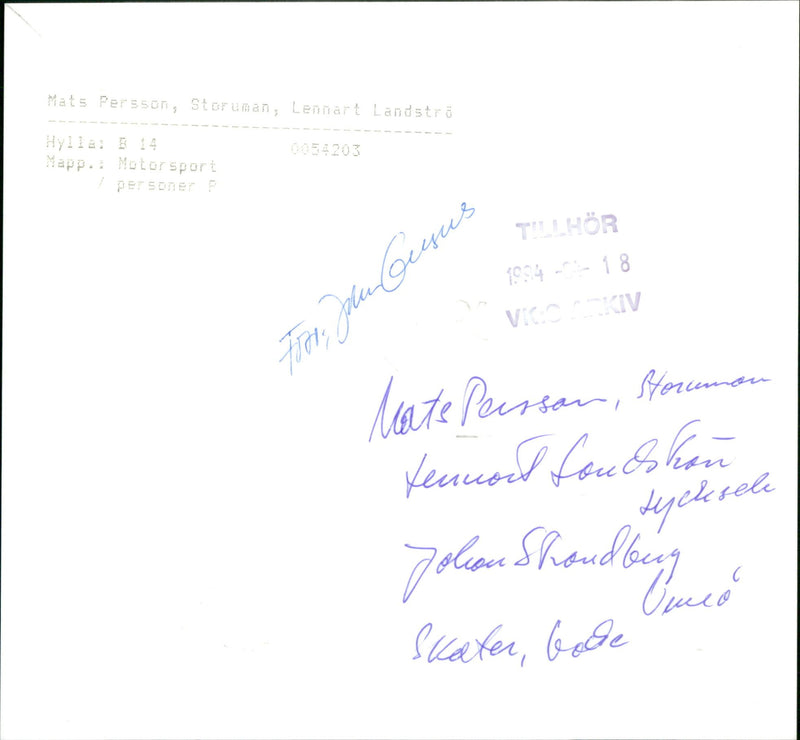 Mats Persson, Storuman, Lennart Landströ
Hylla: B 14 0054203
Mapp.: Motorsport
/ personer P
TILLHÖR
1994 18
ARKIV
Mats Persson, Storuman
Lennart
Lycksele
Johan Strandberg
Umeå
Skoter,